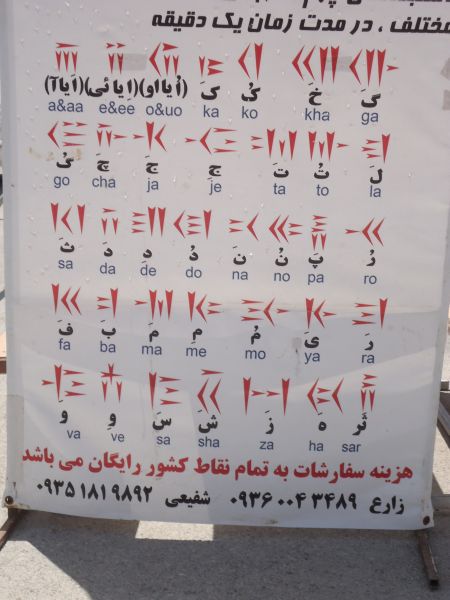 مختلف ، در مدت زمان یک دقیقه
𐎠 𐎡 𐎢 𐎣 𐎤 𐎧 𐎥
گَ خَ کُ کَ (اُ یا او) (اِ یا ئی) (اَ یا آ)
a&aa e&ee o&uo ka ko kha ga
𐎦 𐎨 𐎩 𐎪 𐎫 𐎬 𐎾
لَ تُ تَ جِ جَ چَ گُ
go cha ja je ta to la
𐎰 𐎭 𐎮 𐎯 𐎴 𐎵 𐎱 𐎽
رُ پَ نُ نَ دُ دِ دَ ثَ
sa da de do na no pa ro
𐎳 𐎲 𐎶 𐎷 𐎸 𐎹 𐎼
رَ یَ مُ مِ مَ بَ فَ
fa ba ma me mo ya ra
𐎺 𐎻 𐎿 𐏁 𐏀 𐏃 𐏂
ثَر هَ زَ شَ سَ وِ وَ
va ve sa sha za ha sar
هزینه سفارشات به تمام نقاط کشور رایگان می باشد
زارع ۰۹۳۶۰۰۴۳۴۸۹ شفیعی ۰۹۳۵۱۸۱۹۸۹۲